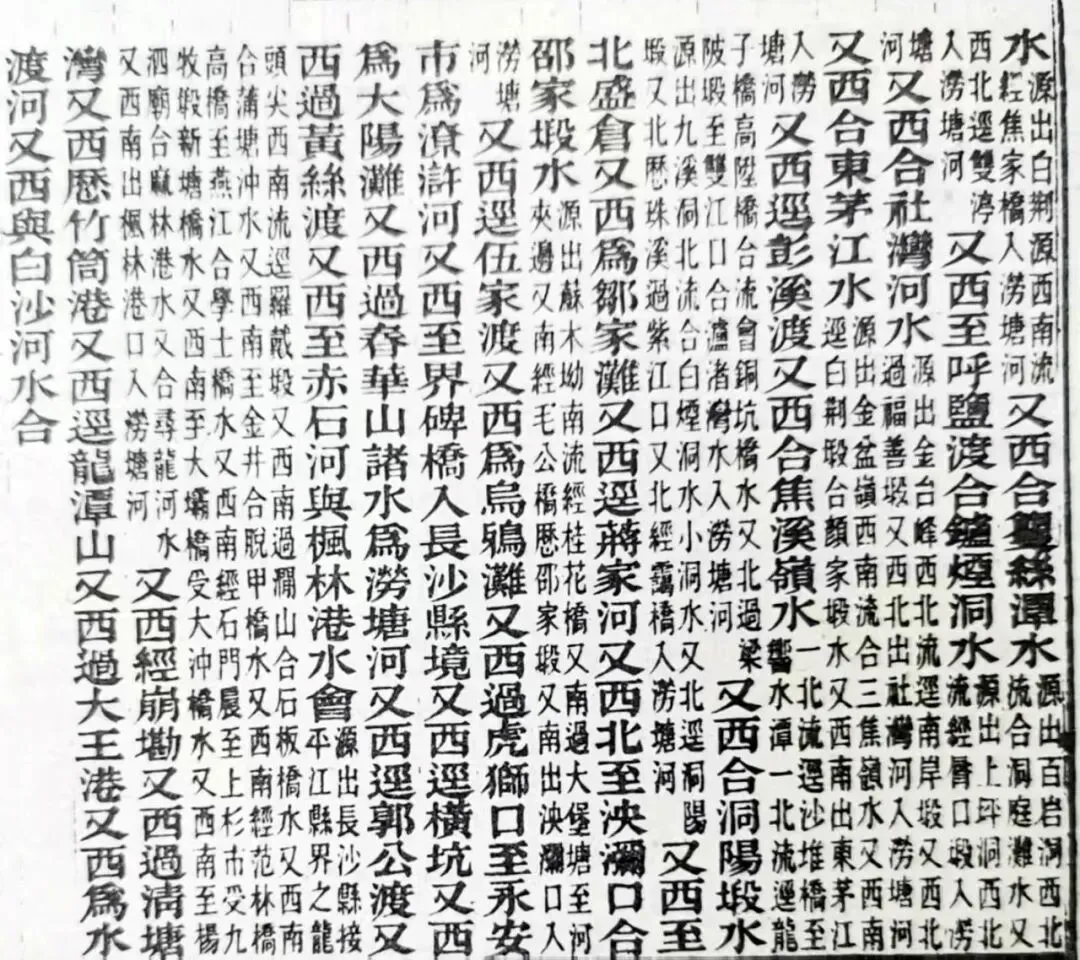 水源出白荆源西南流經焦家橋入澇塘河又西合雙絲潭水源出百岩洞西北流合洞庭灘水又
西北逕雙渟入澇塘河又西至呼鹽渡合鑪煙洞水源出上坪洞西北流經口塅入澇
塘河又西合社灣河水源出金台峰西北流逕南岸塅又西北過福善塅又西北出社灣河入澇塘河
又西合東茅江水源出金盆嶺西南流合三焦嶺水又西南逕白荆塅合顏家塅水又西南出東茅江
入澇塘河又西逕彭溪渡又西合焦溪嶺水一北流逕沙堆橋至響水潭一北流逕龍
子橋高陞橋合流會銅坑橋水又北過梁陂塅至雙江口合瀘渚灣水入澇塘河又西合洞陽塅水
源出九溪洞北流合白煙洞水小洞水又北逕洞陽塅又北歷珠溪過紫江口又北經靄橋入澇塘河又西至
北盛倉又西爲鄒家灘又西逕蔣家河又西北至泱瀰口合
邵家塅水源出蘇木坳南流經桂花橋又南過大堡塘至河夾邊又南經毛公橋歷邵家塅又南出泱瀰口入
澇塘河又西逕伍家渡又西爲烏鴉灘又西過虎獅口至永安
市爲潦滸河又西至界碑橋入長沙縣境又西逕橫坑又西
爲大陽灘又西過春華山諸水爲澇塘河又西逕郭公渡又
西過黃絲渡又西至赤石河與楓林港水會源出長沙縣接平江縣界之龍
頭尖西南流逕羅戴塅又西南過澗山合石板橋水又西南合蒲塘沖水又西南至金井合脫甲橋水又西南經范林橋
高橋至燕江合學士橋水又西南經石門晨至上杉市受九牧塅新塘橋水又西南至大壩橋受大沖橋水又西南至楊
泗廟合麻林港水又合尋龍河水又西南出楓林港口入澇塘河又西經崩墈又西過清塘
灣又西歷竹筒港又西逕龍潭山又西過大王港又西爲水
渡河又西與白沙河水合